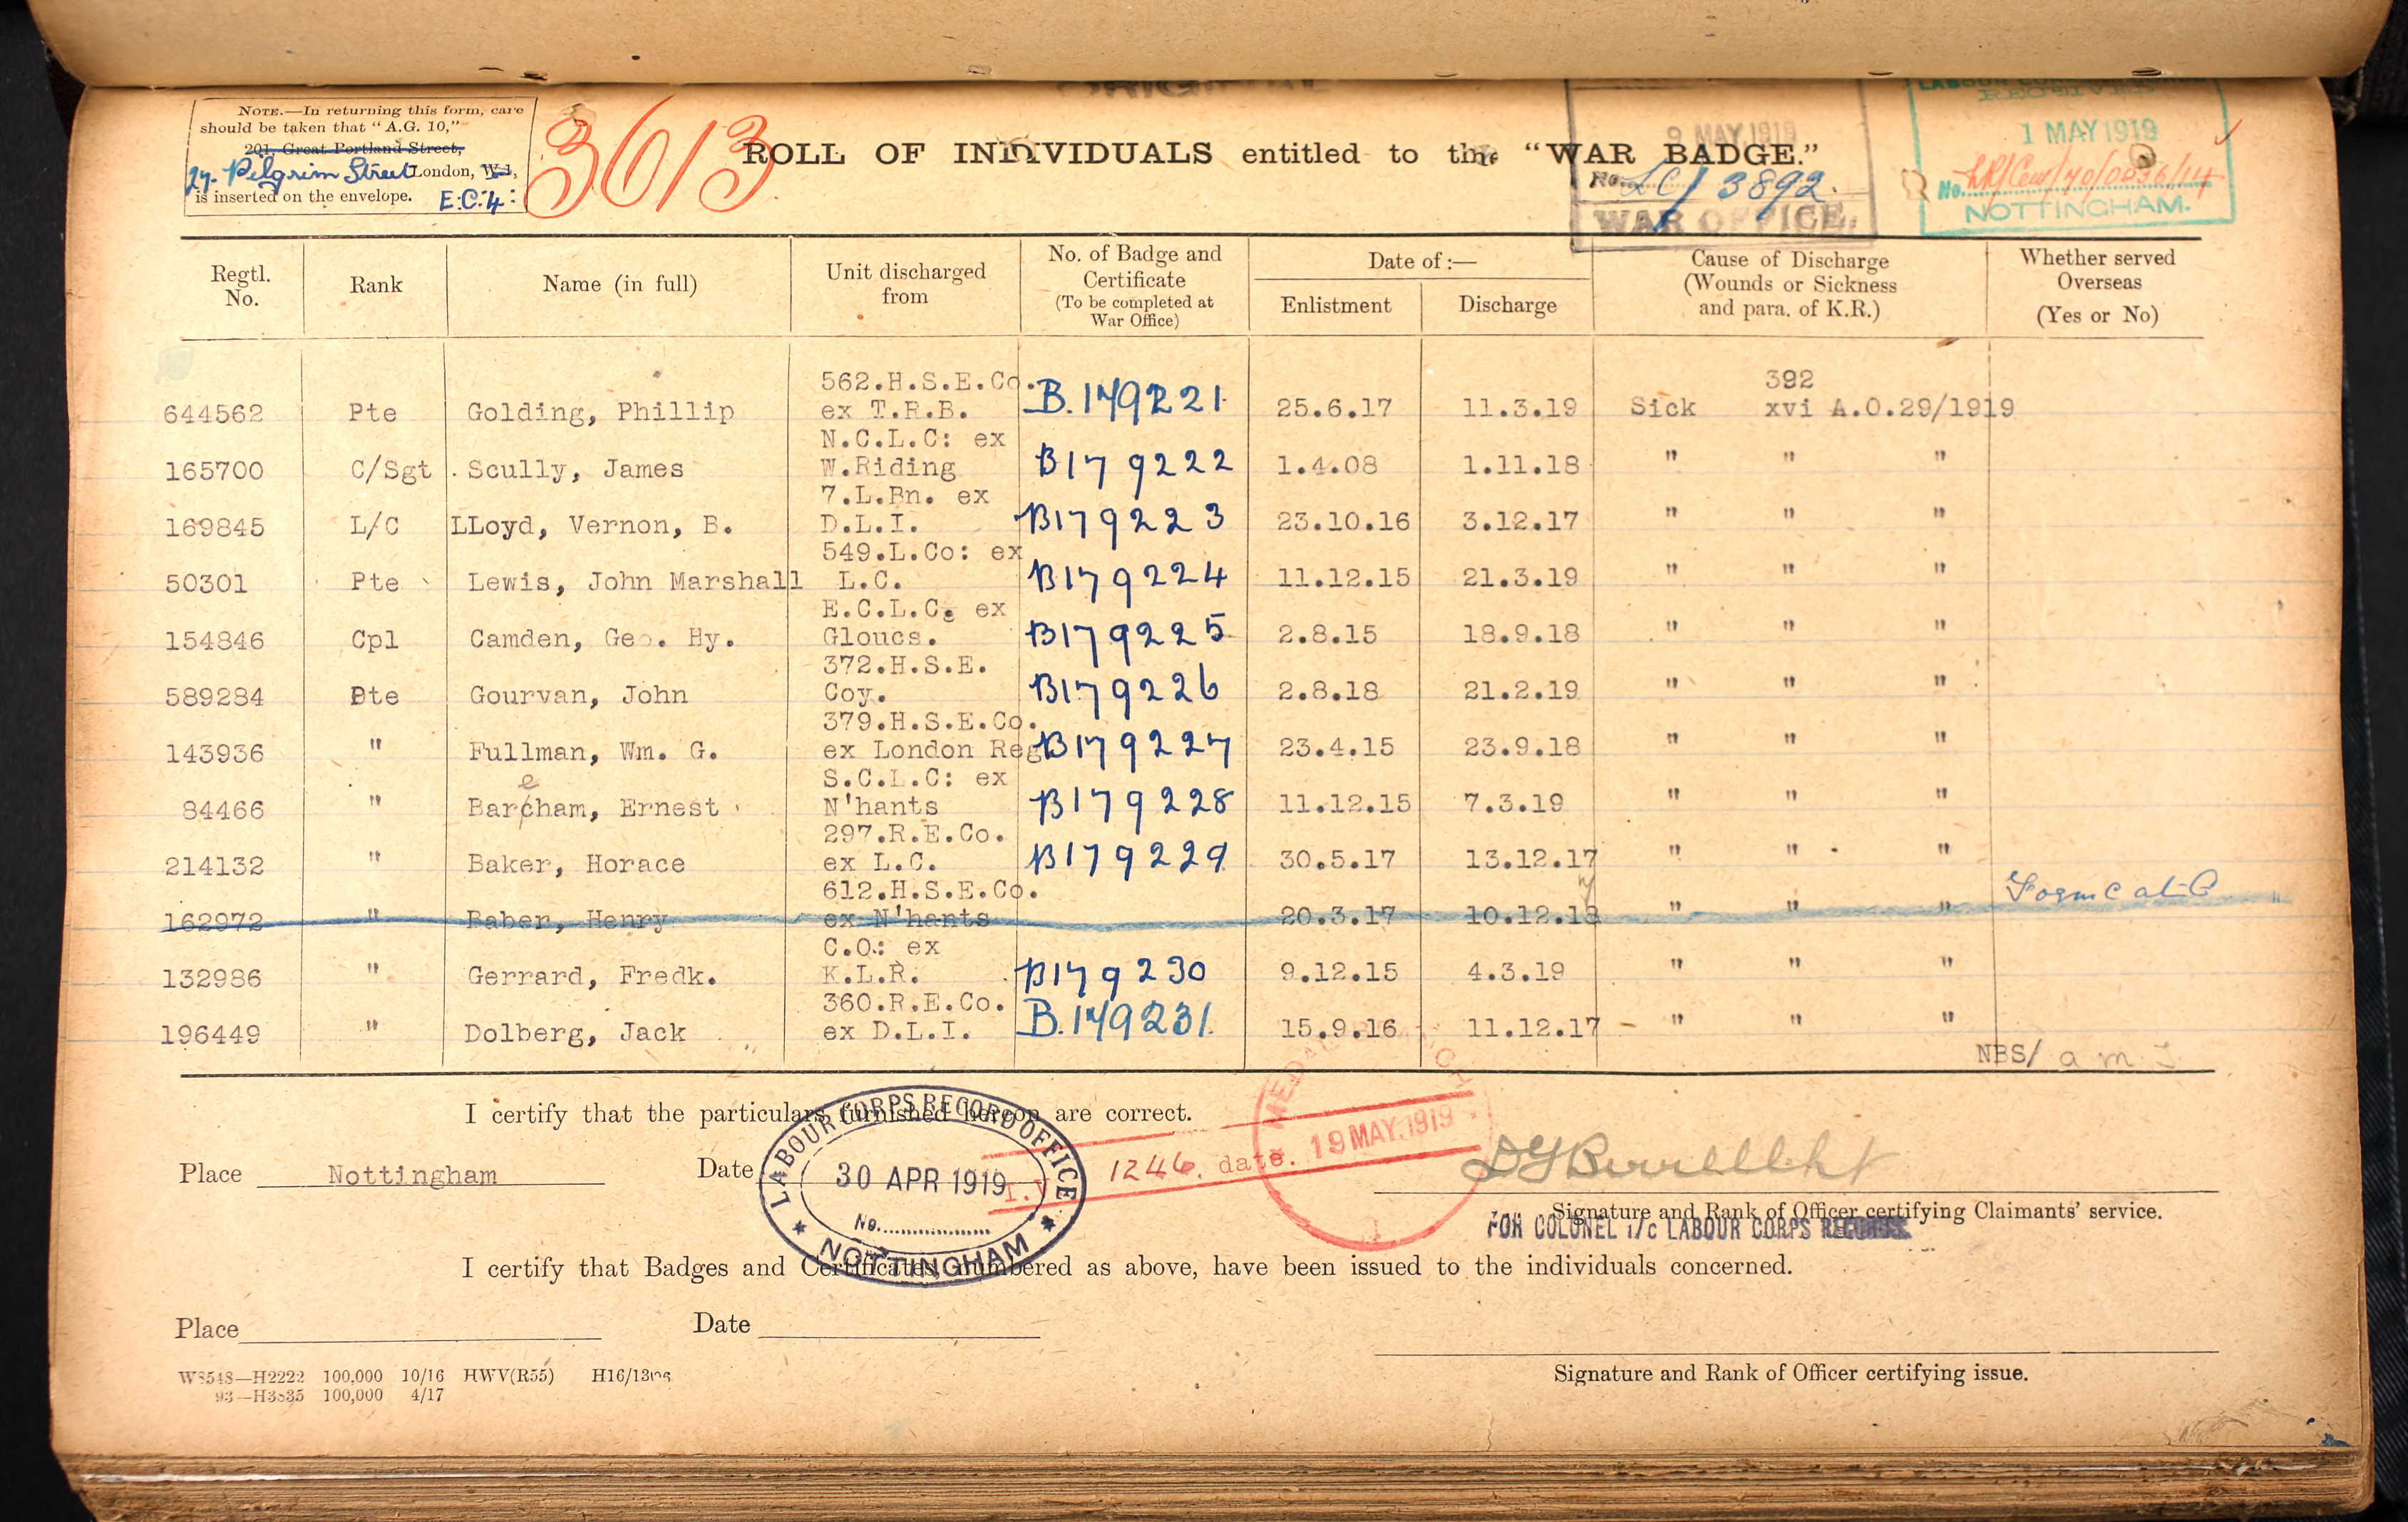 NOTE.—In returning this form, care
should be taken that "A.G. 10,"
201, Great Portland Street,
27- Pilgrim Street London, W.1,
is inserted on the envelope. E.C.4:
3613
ROLL OF INDIVIDUALS entitled to the "WAR BADGE."
9 MAY 1919
No. LC/3892.
WAR OFFICE.
RECEIVED
1 MAY 1919
No.
NOTTINGHAM.
Regtl. No. Rank Name (in full) Unit discharged from No. of Badge and Certificate (To be completed at War Office) Date of:— Enlistment Discharge Cause of Discharge (Wounds or Sickness and para. of K.R.) Whether served Overseas (Yes or No)
562.H.S.E.Co. 392
644562 Pte Golding, Phillip ex T.R.B. B.179221 25.6.17 11.3.19 Sick xvi A.O.29/1919
N.C.L.C: ex
165700 C/Sgt Scully, James W.Riding B179222 1.4.08 1.11.18 " " "
7.L.Bn. ex
169845 L/C LLoyd, Vernon, B. D.L.I. B179223 23.10.16 3.12.17 " " "
549.L.Co: ex
50301 Pte Lewis, John Marshall L.C. B179224 11.12.15 21.3.19 " " "
E.C.L.C. ex
154846 Cpl Camden, Geo. Hy. Gloucs. B179225 2.8.15 18.9.18 " " "
372.H.S.E.
589284 Pte Gourvan, John Coy. B179226 2.8.18 21.2.19 " " "
379.H.S.E.Co.
143936 " Fullman, Wm. G. ex London Reg B179227 23.4.15 23.9.18 " " "
S.C.L.C: ex
84466 " Barcham, Ernest N'hants B179228 11.12.15 7.3.19 " " "
e
297.R.E.Co.
214132 " Baker, Horace ex L.C. B179229 30.5.17 13.12.17 " " "
612.H.S.E.Co. 7
162972 " Baber, Henry ex N'hants 20.3.17 10.12.18 " " " Form C
C.O.: ex
132986 " Gerrard, Fredk. K.L.R. B179230 9.12.15 4.3.19 " " "
360.R.E.Co.
196449 " Dolberg, Jack ex D.L.I. B.179231. 15.9.16 11.12.17 " " "
NBS/
I certify that the particulars furnished hereon are correct.
LABOUR CORPS RECORD OFFICE
30 APR 1919
No.
NOTTINGHAM
1246. date. 19 MAY. 1919
Place Nottingham Date
Signature and Rank of Officer certifying Claimants' service.
FOR COLONEL i/c LABOUR CORPS RECORDS.
I certify that Badges and Certificates, numbered as above, have been issued to the individuals concerned.
Place Date
W8548—H2222 100,000 10/16 HWV(R55)
100,000 4/17
Signature and Rank of Officer certifying issue.